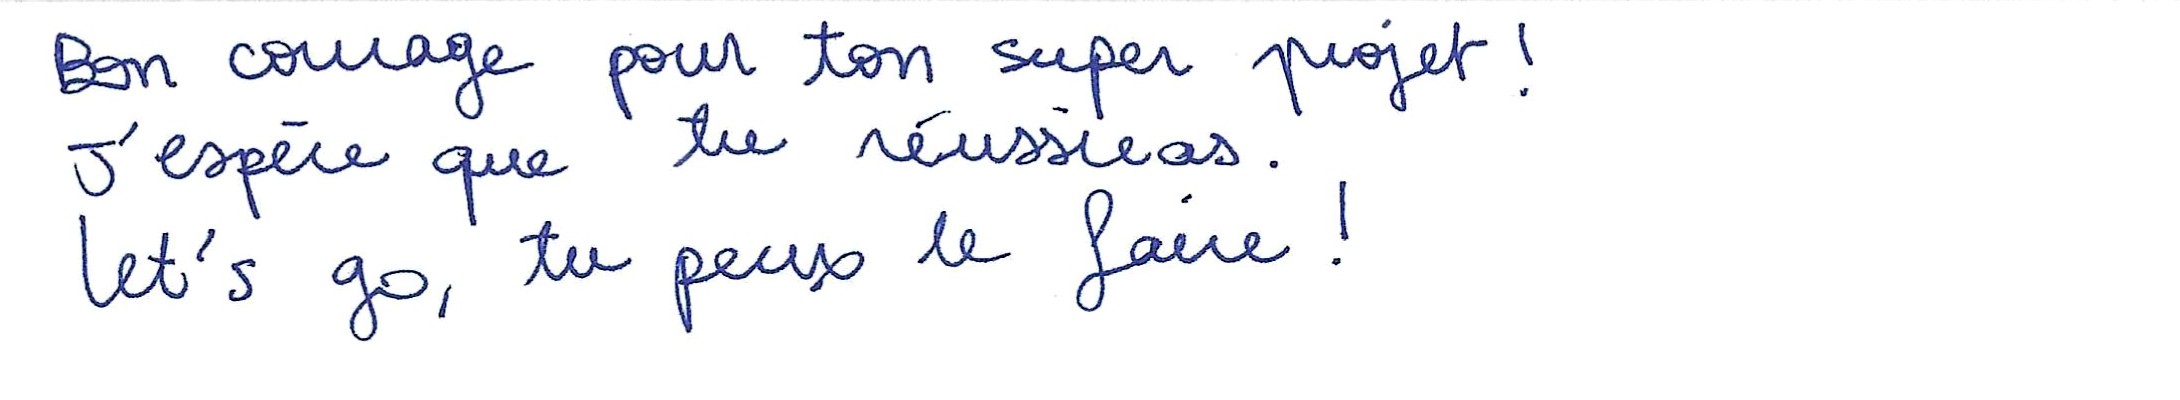 Bon courage pour ton super projet !
J'espère que tu réussiras.
Let's go, tu peux le faire !